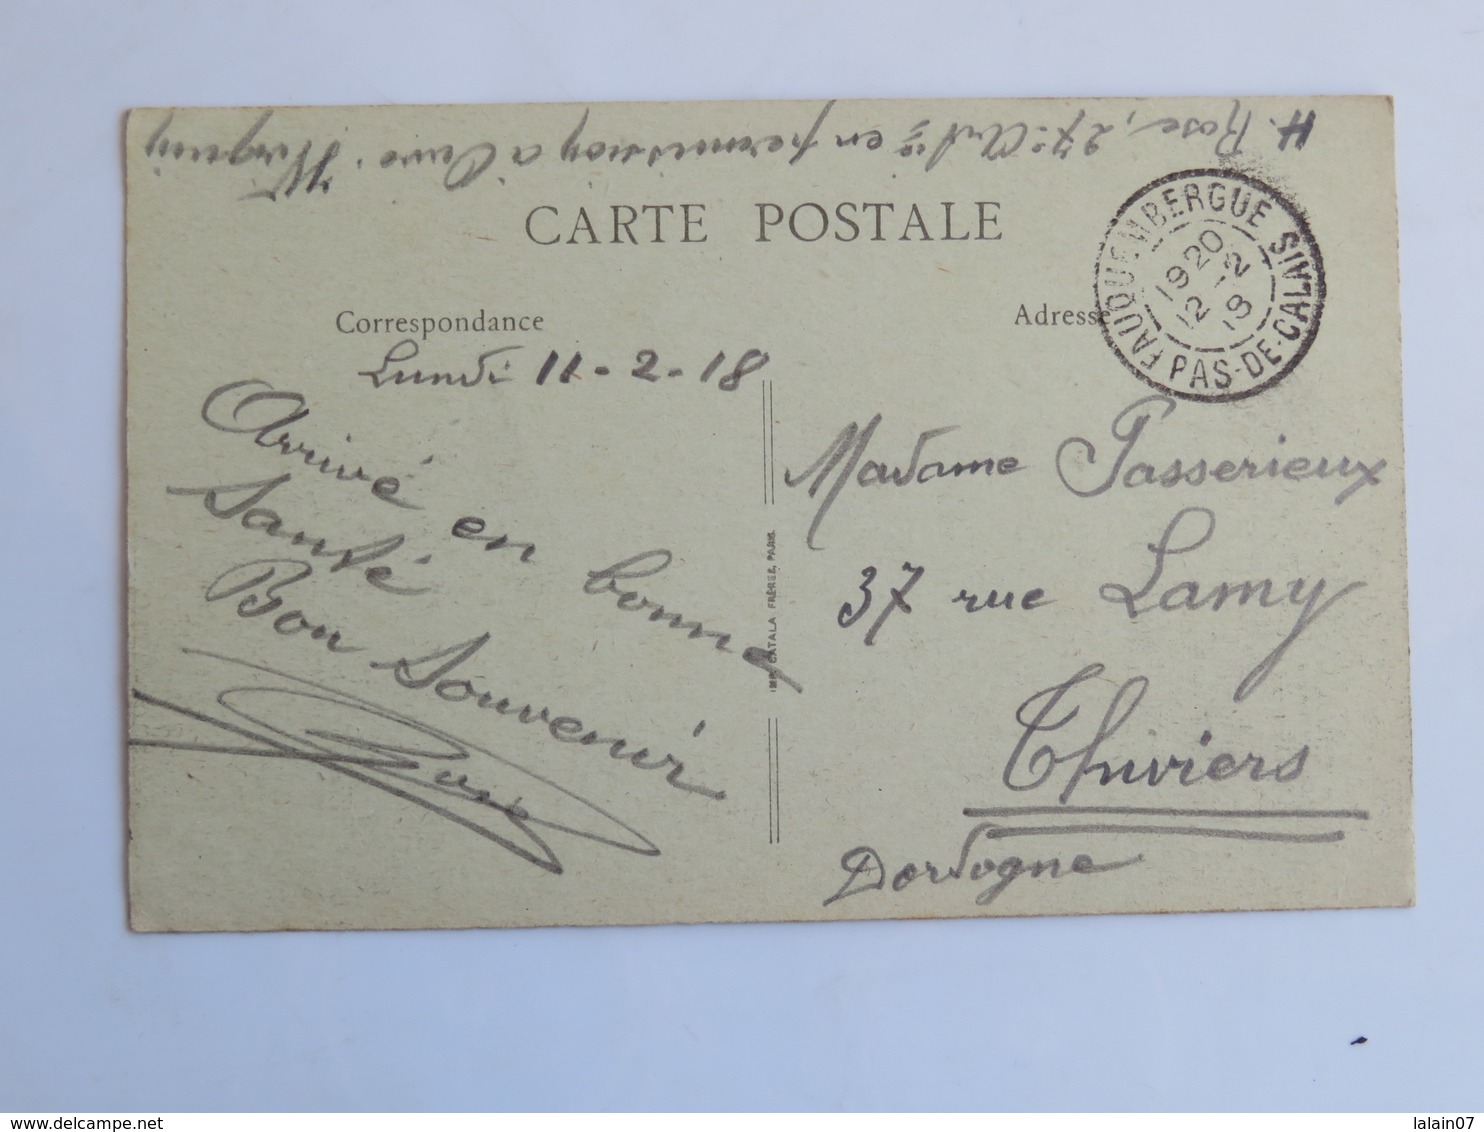 H. Rose, 27e Art ie en permission a
CARTE POSTALE
FAUQUEMBERGUE PAS-DE-CALAIS
1920
12 -2
18
Correspondance
Adresse
Lundi 11-2-18
Arrivé en bonne
Santé
Bon Souvenir
Rose
IMP. CATALA FRÈRES, PARIS.
Madame Passerieux
37 rue Lamy
Thiviers
Dordogne
www.delcampe.net
lalain07